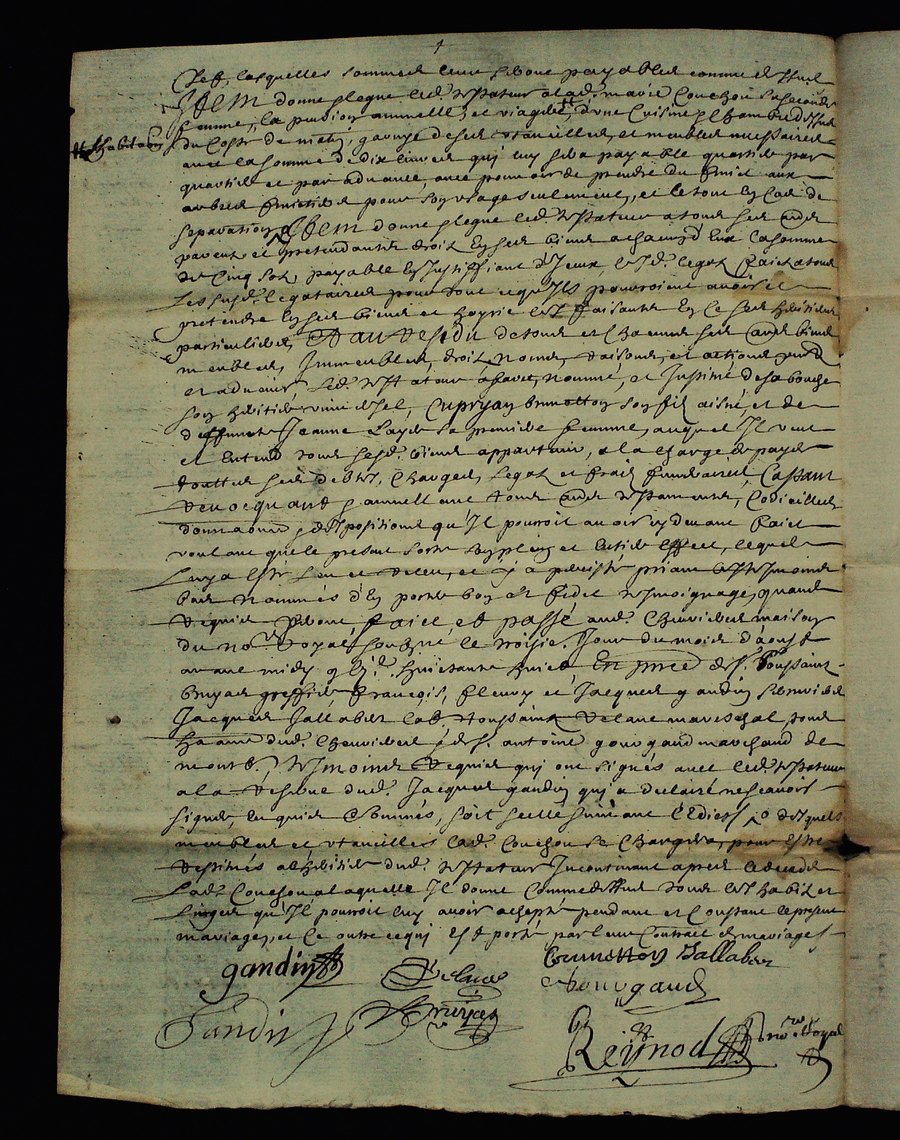 Chef, lesquelles sommes leur seront payables comme dessus
Item donne & legue led. testateur a lad. marie Couchon sa seconde
femme, la pention annuelle, et viagere, d'une Cuisine & chambre dessus
# habitation
du Costé de midy, garnye de ses utancilles, et meubles necessaires
avec la somme de dix livres qui luy sera payable quartier par
quartier et par advance, avec pouvoir de prendre du fruict aux
arbres fruictiers pour son usage seulement, et le tout en Cas de
separation, Item donne & legue led. testateur a tous ses autres
parents et pretendants droit en ses biens a chacun d'Eux la somme
de Cinq sols, payable en Justiffiant d'Iceux, led. legat faict a tous
les susd. legataires pour tout ce qu'Ils pourroient avoir et
pretendre en ses biens et hoyrie les faisants en ce ses heritiers
particuliers, Et au Residu de tous et Chacuns ses autres biens
meubles, Immeubles, droits, noms, raisons, et actions
et advenir led. testateur a faict, nommé, et Institué de sa bouche
son heritier universel, Cupryan Brunetton son fils aisné, et de
deffuncte Jeanne Layer sa premiere femme, auquel Il veut
et Entend tous sesd. biens appartenir, a la charge de payer
touttes ses debtes, Charges, legats et frais funeraires, Cassant
Revocquant & annullant tous autres testaments, Codicilles
donnations & dispositions qu'Il pourroit avoir cy devant faict
voulant que le present sorte son plein et Entier Effect, lequel
luy a esté leu et releu, et y a persisté priant les tesmoins
bas nommés d'En porter bon et fidel tesmoignage, quand
Requis seront faict et passé aud. Chenviers maison
du no.re Royal soubsigné le troisie. Jour du mois d'aoust
avant midy huictante huict En pnce de s.r Toussaint
Bruyas greffier, François, fleury et Jacques gandin
Jacques Jallabert lab. Toussainct Delane mareschal, tous
habitans dud. Chenviers & de s.r antoine gourgaud marchand de
tesmoins Requis qui ont signés avec led. testateur
a la Reserve dud. Jacques gandin qui a declairé ne scavoir
signer, Enquis & sommés, soit scellé suivant l'Edict, desquels
meubles et utancilles lad. Couchon se Chargera, pour estre
Restitués a l'heritier dud. testateur Incontinant apres le decede
lad. Couchon a laquelle Il donne Comme dessus tous les habits et
linges qu'Il pourroit luy avoir achepté pendant et Constant le present
mariage, et ce outre ce qui Est porté par leur Contrat de mariage
gandin Delane Brunetton Jallabert
gourgaud
Gandin Bruyas
Reynod no.re Royal